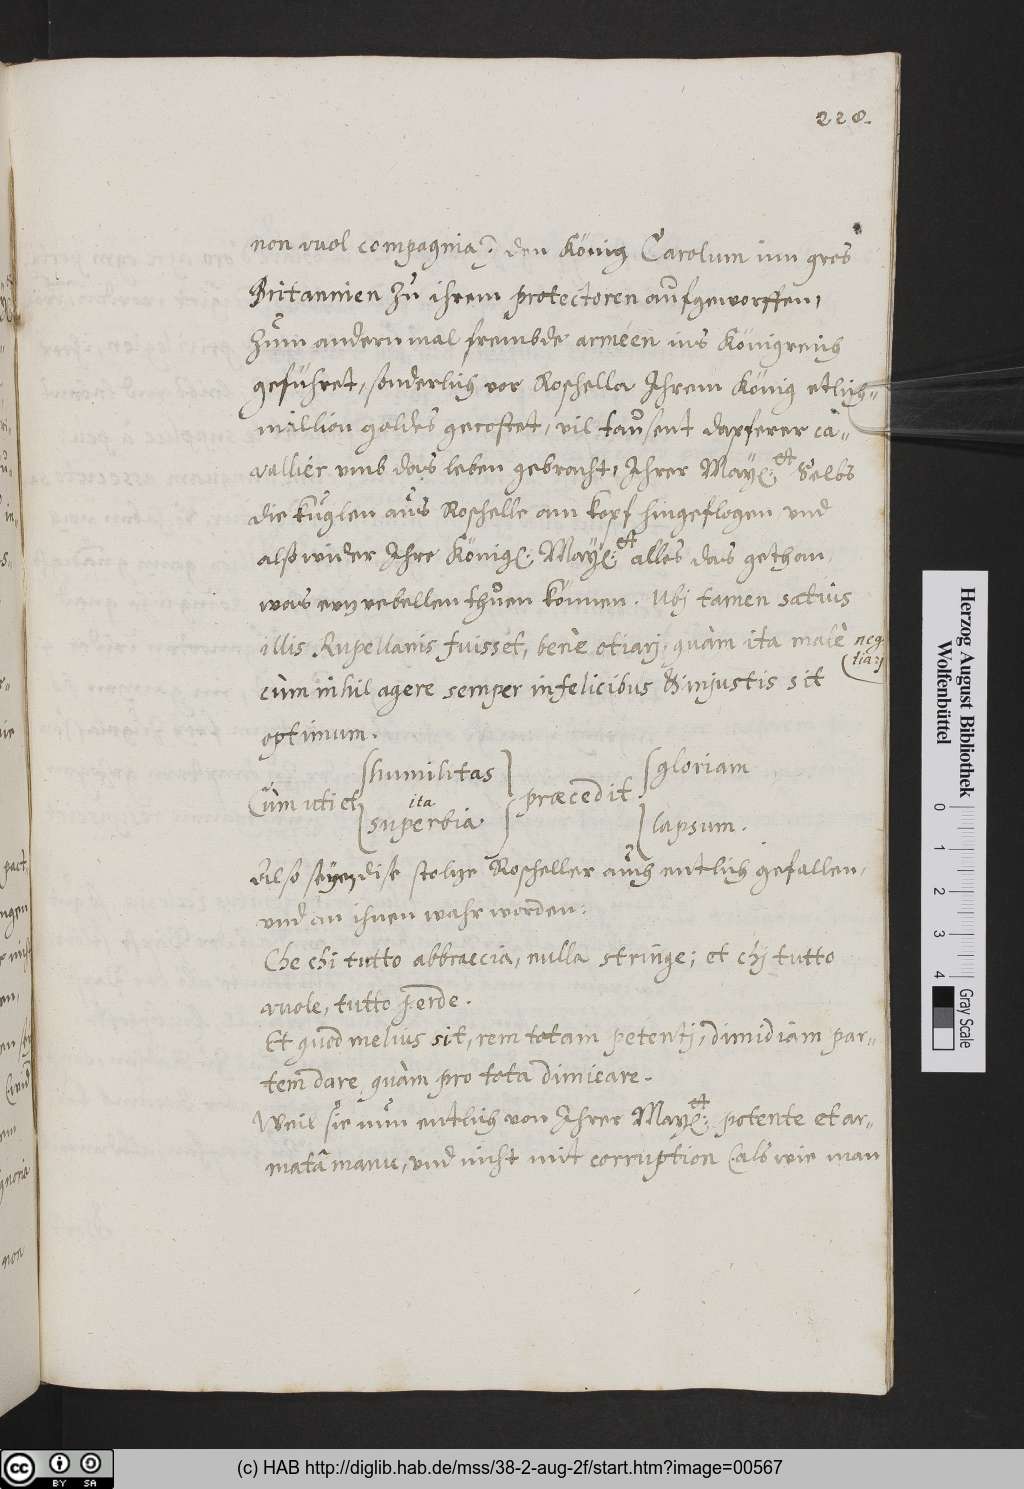 228.
non vuol compagnia? den König Carolum inn gros
Britannien zu ihrem protectoren aufgeworffen,
zum andern mal frembde arméen ins Königreich
geführet, sonderlich vor Roschella Ihrem König etlich-
million goldes gecostet, vil tausent dapferer ca-
vallier umb das leben gebracht, Ihrer Mayᵉᵗ: Selbs
die kuglen aus Roschelle am kopf hingeflogen und
also wider Ihre Königl: Mayᵉᵗ: alles das gethan,
was ery rebellen thuen können. Ubj tamen satius
illis Rupellanis fuisset, benè otiarj, quàm ita malè neg-
(tiarj
cùm nihil agere semper infelicibus & injustis sit
optimum.
Cùm uti et humilitas præcedit gloriam
ita superbia lapsum.
Also seyen dise stolze Roscheller auch entlich gefallen,
und an ihnen wahr worden:
Che chi tutto abbraccia, nulla stringe; et chj tutto
vuole, tutto perde.
Et quod melius sit, rem totam petentj, dimidiam par-
tem dare, quàm pro tota dimicare.
Weil sie nun entlich von Ihrer Mayᵉᵗ: potente et ar-
matâ manu, und nicht mit corruption (als wie man
Herzog August Bibliothek
Wolfenbüttel
0 1 2 3 4
Gray Scale
cc BY SA
(c) HAB http://diglib.hab.de/mss/38-2-aug-2f/start.htm?image=00567